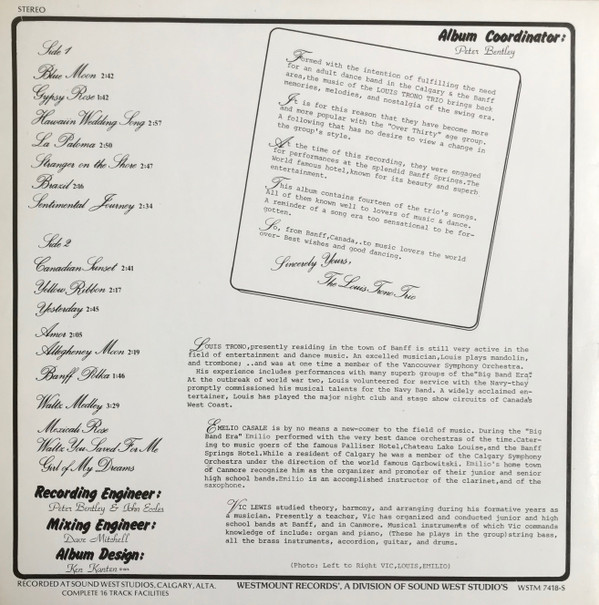 STEREO
Side 1
Blue Moon 2:42
Gypsy Rose 1:42
Hawaiin Wedding Song 2:57
La Paloma 2:50
Stranger on the Shore 2:47
Brazil 2:06
Sentimental Journey 2:34
Side 2
Canadian Sunset 2:41
Yellow Ribbon 2:17
Yesterday 2:45
Amor 2:05
Allegheney Moon 2:19
Banff Polka 1:46
Waltz Medley 3:29
Mexicali Rose
Waltz You Saved For Me
Girl of My Dreams
Recording Engineer:
Peter Bentley & John Eccles
Mixing Engineer:
Dave Mitchell
Album Design:
Ken Kanten
Album Coordinator:
Peter Bentley
Formed with the intention of fulfilling the need
for an adult dance band in the Calgary & the Banff
area,the music of the LOUIS TRONO TRIO brings back
memories, melodies, and nostalgia of the swing era.
It is for this reason that they have become more
and more popular with the "Over Thirty" age group.
A following that has no desire to view a change in
the group's style.
At the time of this recording, they were engaged
for performances at the splendid Banff Springs.The
World famous hotel,known for its beauty and superb
entertainment.
This album contains fourteen of the trio's songs.
All of them known well to lovers of music & dance.
A reminder of a song era too sensational to be for-
gotten.
So, from Banff,Canada,.to music lovers the world
over- Best wishes and good dancing.
Sincerely Yours,
The Louis Trono Trio
LOUIS TRONO,presently residing in the town of Banff is still very active in the
field of entertainment and dance music. An excelled musician,Louis plays mandolin,
and trombone; ..and was at one time a member of the Vancouver Symphony Orchestra.
His experience includes performances with many superb groups of the"Big Band Era"
At the outbreak of world war two, Louis volunteered for service with the Navy-they
promptly commissioned his musical talents for the Navy Band. A widely acclaimed en-
tertainer, Louis has played the major night club and stage show circuits of Canada's
West Coast.
EMELIO CASALE is by no means a new-comer to the field of music. During the "Big
Band Era" Emilio performed with the very best dance orchestras of the time.Cater-
ing to music goers of the famous Palliser Hotel,Chateau Lake Louise,and the Banff
Springs Hotel.While a resident of Calgary he was a member of the Calgary Symphony
Orchestra under the direction of the world famous Garbowitski. Emilio's home town
of Canmore recognize him as the organizer and promoter of their junior and senior
high school bands.Emilio is an accomplished instructor of the clarinet,and of the
saxophone.
VIC LEWIS studied theory, harmony, and arranging during his formative years as
a musician. Presently a teacher, Vic has organized and conducted junior and high
school bands at Banff, and in Canmore. Musical instruments of which Vic commands
knowledge of include: organ and piano, (These he plays in the group)string bass,
all the brass instruments, accordion, guitar, and drums.
(Photo: Left to Right VIC,LOUIS,EMILIO)
RECORDED AT SOUND WEST STUDIOS, CALGARY, ALTA.
COMPLETE 16 TRACK FACILITIES
WESTMOUNT RECORDS', A DIVISION OF SOUND WEST STUDIO'S
WSTM 7418-S